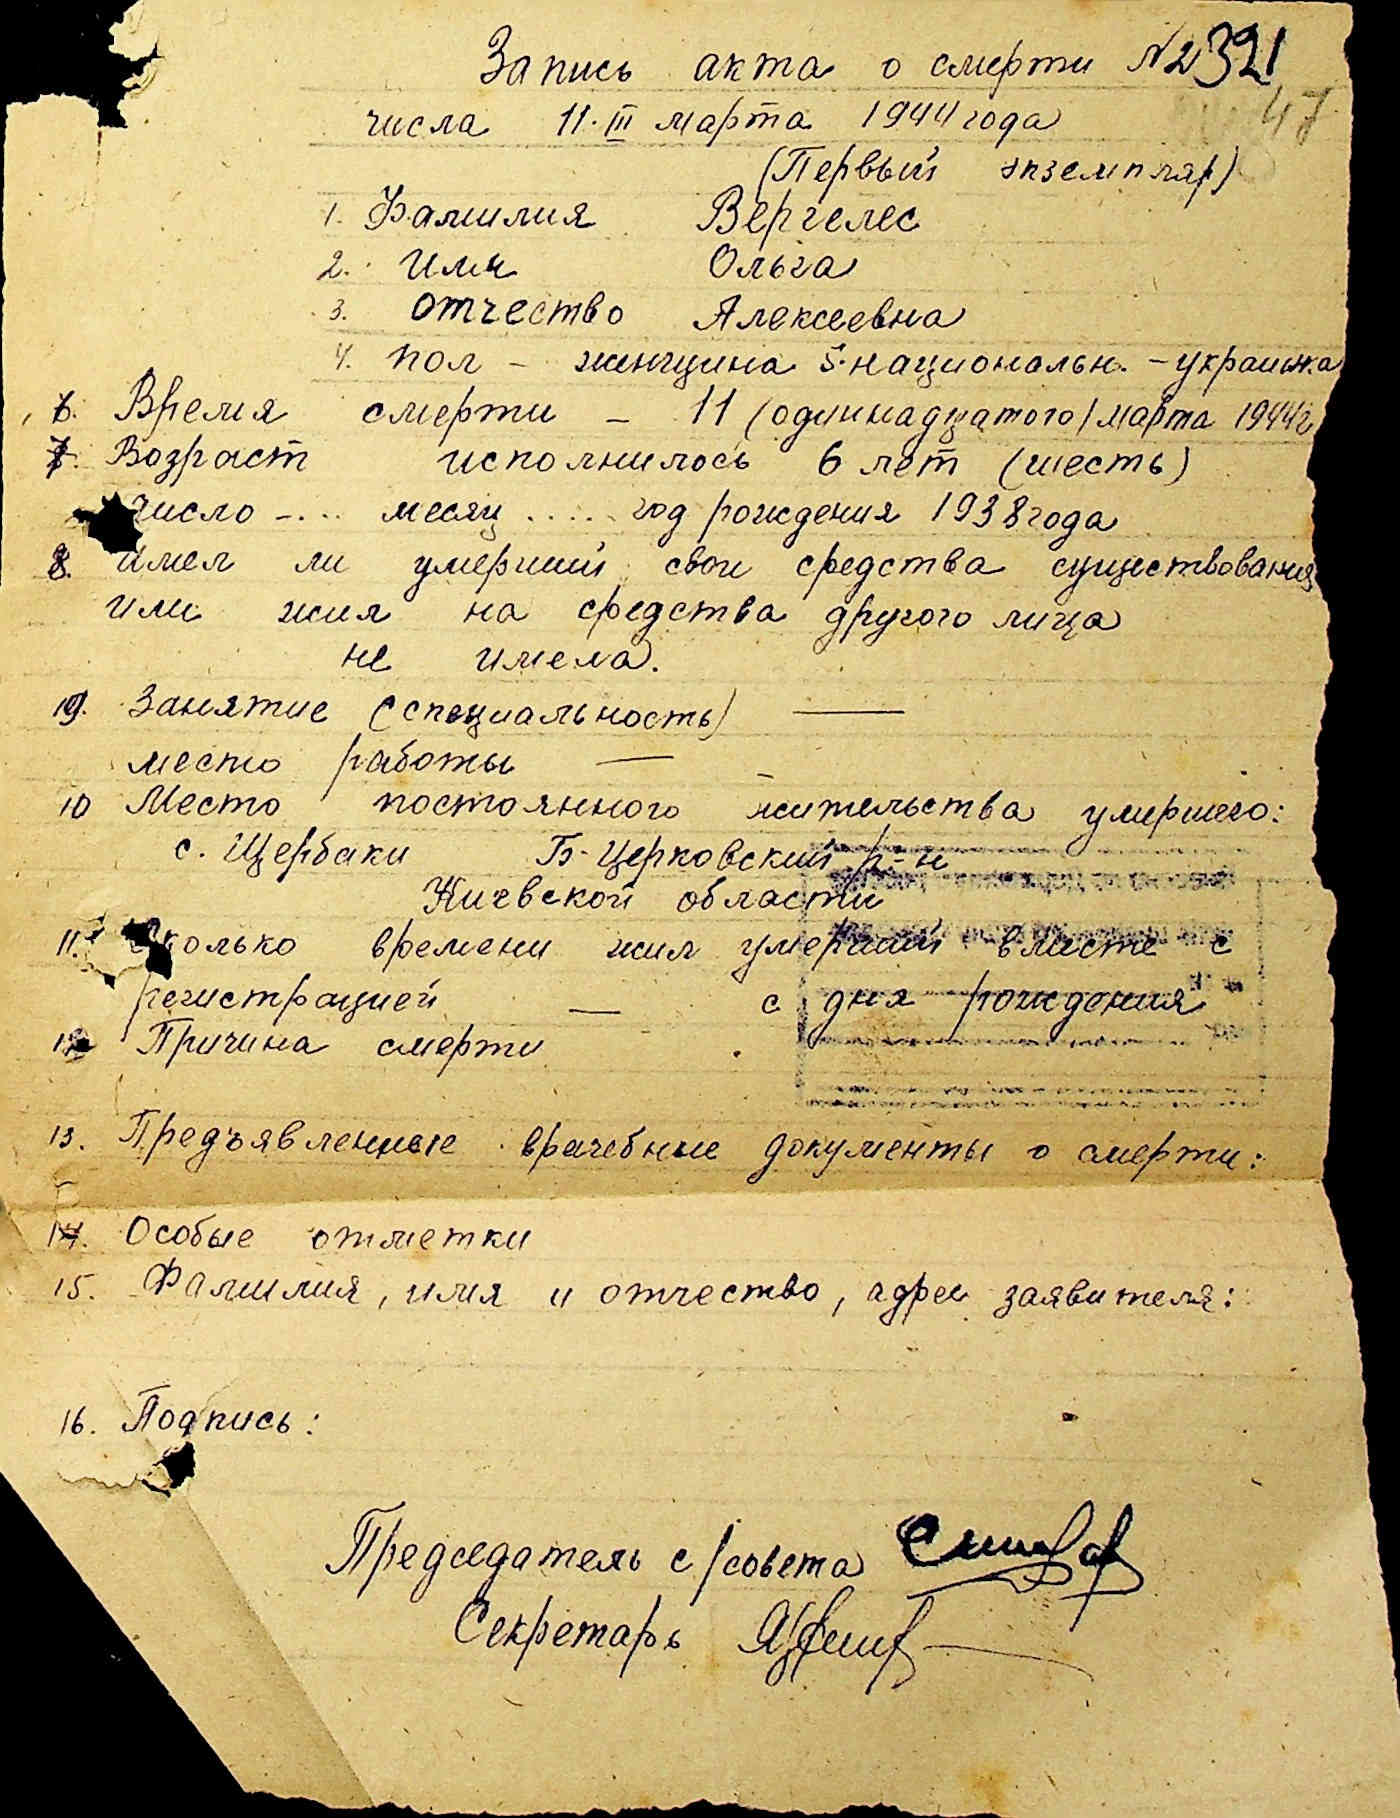 Запись акта о смерти № 2321
47
числа 11. III марта 1944 года
(Первый экземпляр)
1. Фамилия Вергелес
2. Имя Ольга
3. Отчество Алексеевна
4. пол – женщина 5. национальн. – украинка
6. Время смерти – 11 (одиннадцатого) марта 1944г
7. Возраст исполнилось 6 лет (шесть)
число –... месяц .... год рождения 1938 года
8. имел ли умерший свои средства существования
или жил на средства другого лица
не имела.
9. Занятие (специальность) —
место работы —
10 Место постоянного жительства умершего:
с. Щербаки Б-Церковский р-н
Киевской области
11. Сколько времени жил умерший вместе с
регистрацией — с дня рождения
12 Причина смерти
13. Предъявленные врачебные документы о смерти:
14. Особые отметки
15. Фамилия, имя и отчество, адрес заявителя:
16. Подпись:
Председатель с/совета
Секретарь